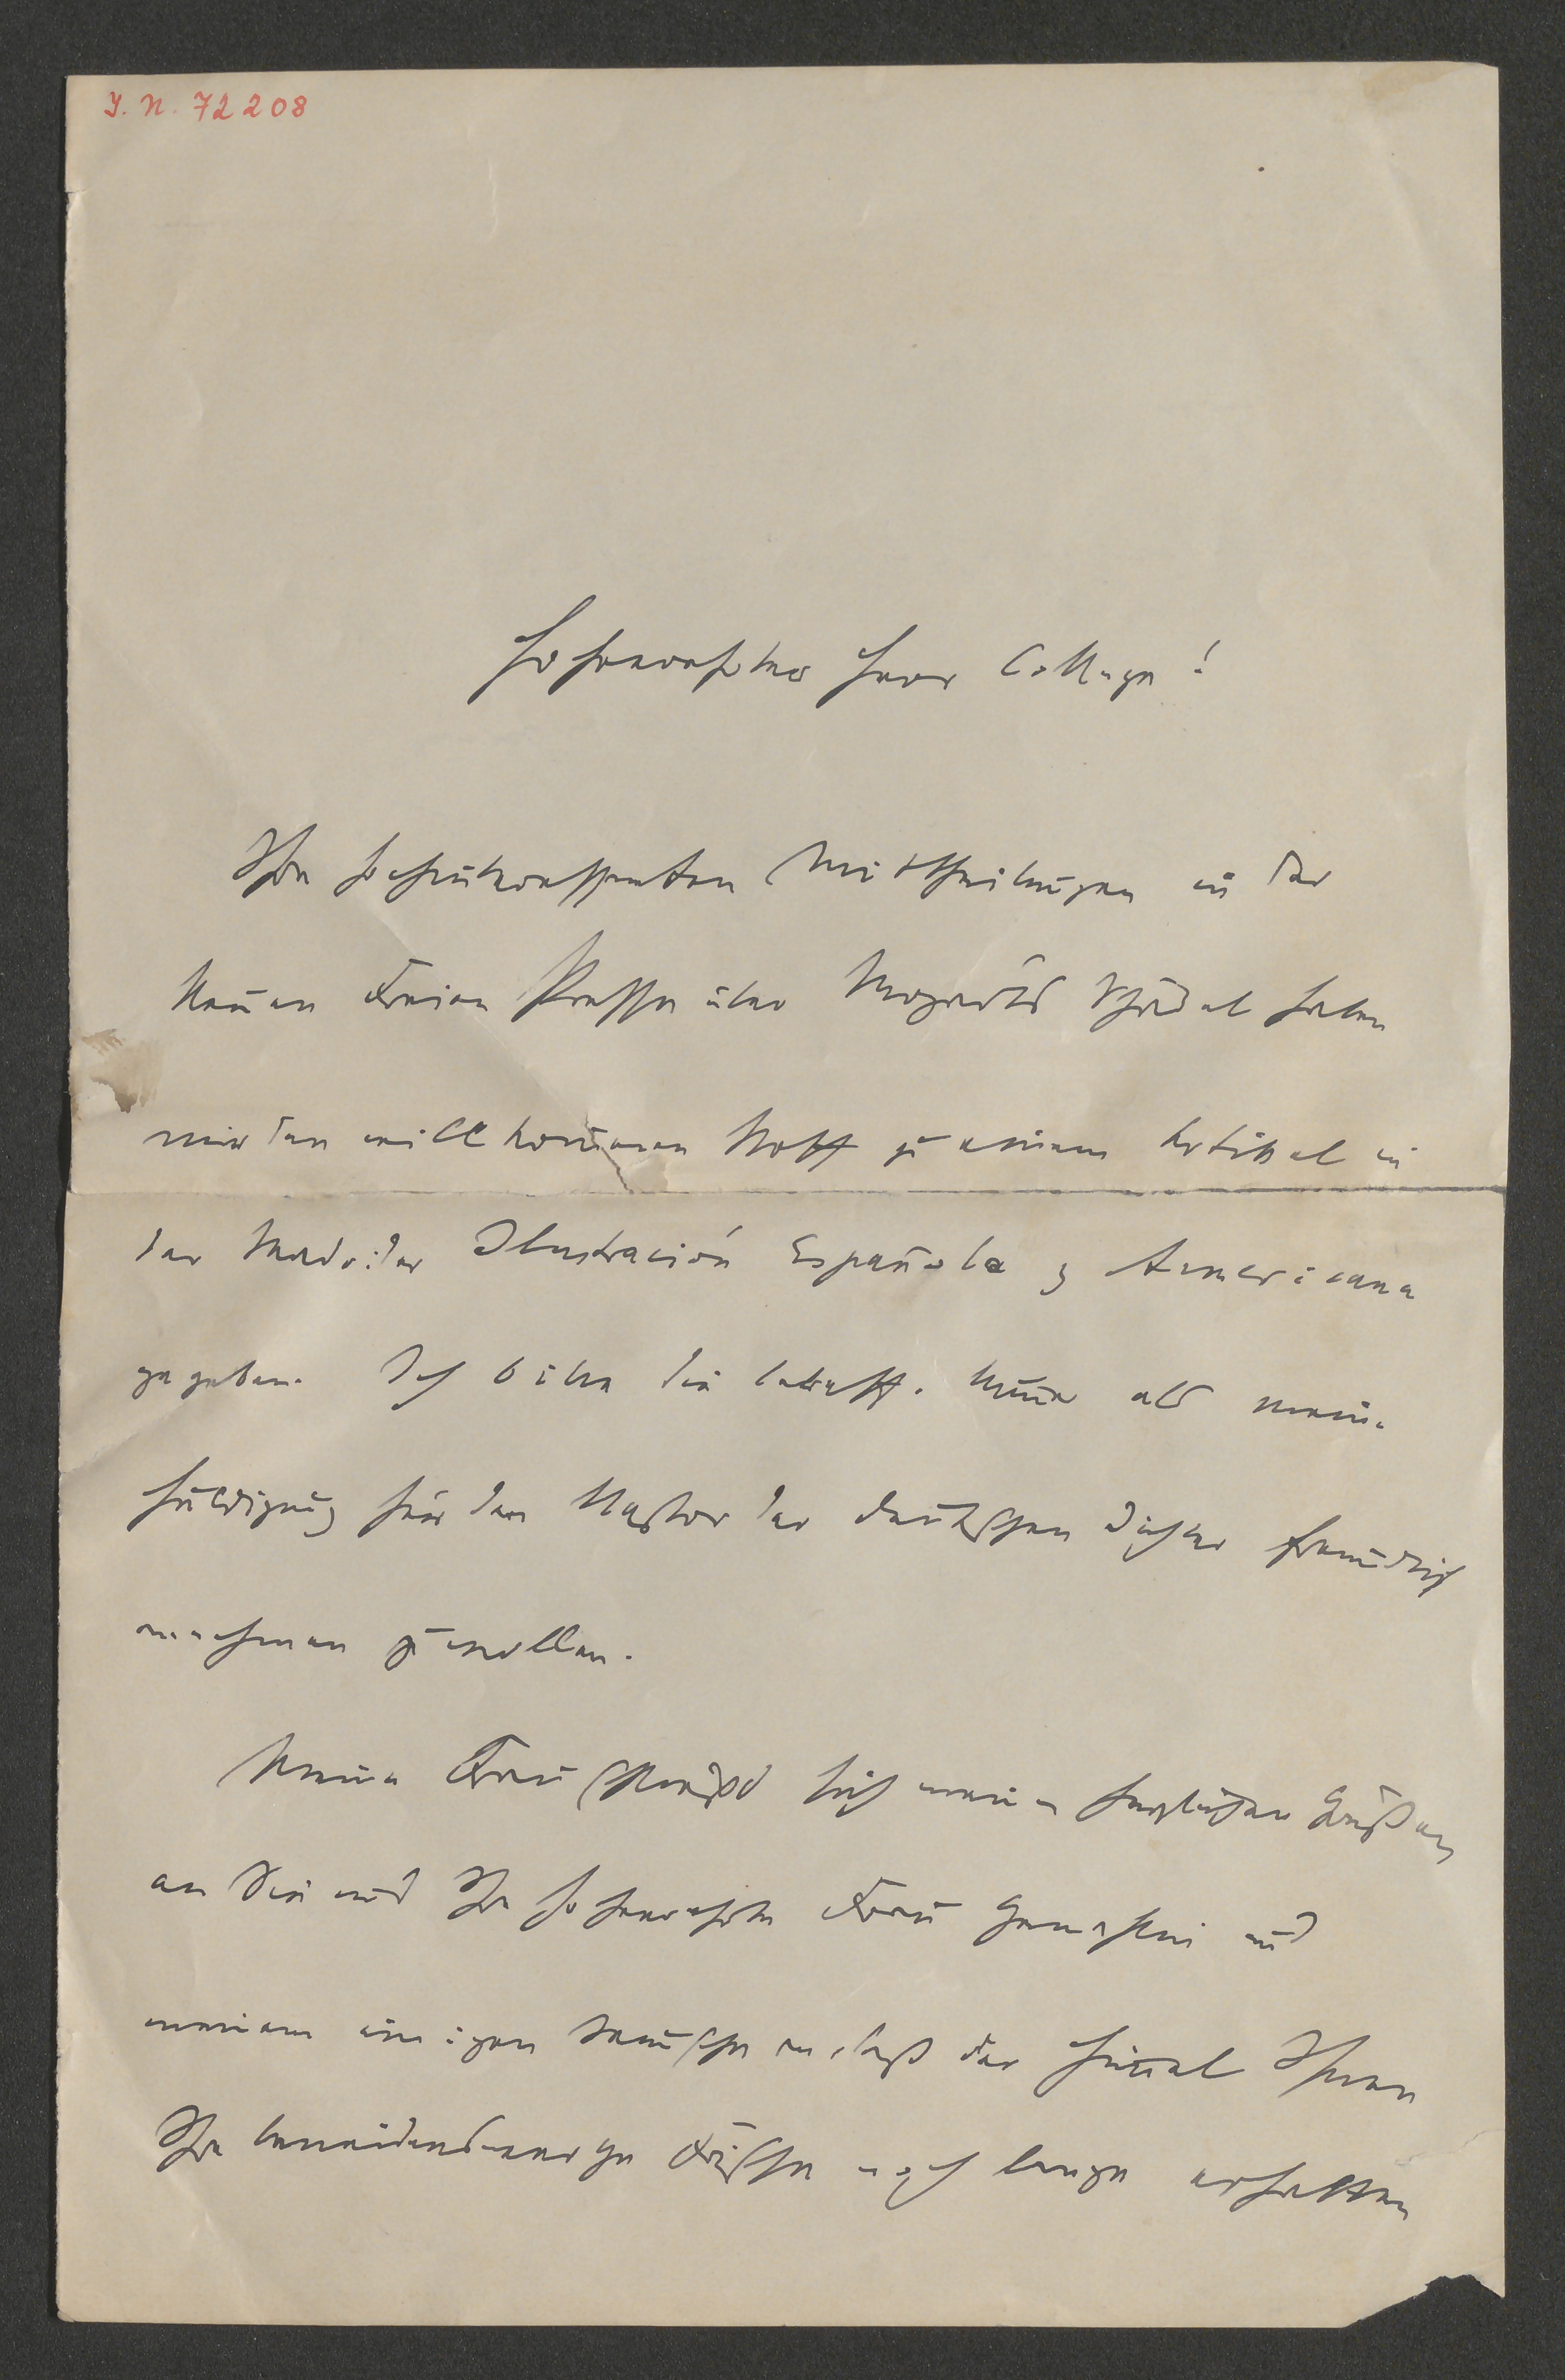 I. N. 72208
Hochverehrter Herr College!
Ihre hochinteressanten Mittheilungen in der
Neuen Freien Presse über Mozarts Schädel haben
mir den willkommenen Stoff zu einem Artikel in
der Madrider Ilustración Española y Americana
gegeben. Ich bitte die betreff. Numer als meine
Huldigung für den Nestor der deutschen Dichter freundlich
annehmen zu wollen.
Meine Frau schließt sich meinen herzlichen Grüßen
an Sie und Ihre hochverehrte Frau Gemahlin und
meinem innigen Wunsche an, daß der Himel Ihnen
Ihre beneidenswerthe Frische noch lange erhalten